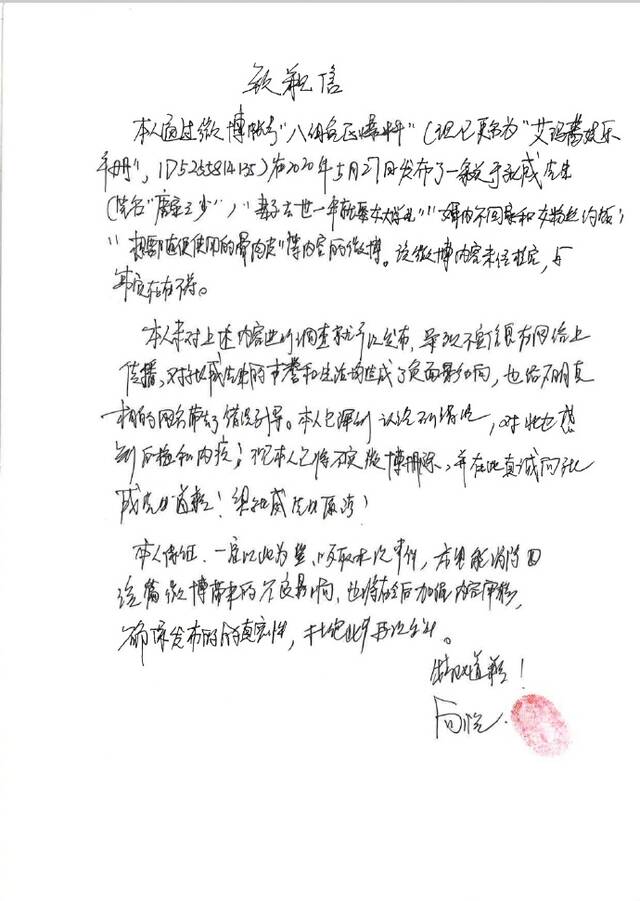 致歉信
本人通过微博帐号"八组兔区爆料"(现已更名为"艾玛酱娱乐
手册",ID5255814135)在2020年5月27日发布了一条关于张威先生
(笔名"唐家三少")"妻子去世一年就 女大学生""一年内不同 和女粉丝约饭"
" 随便使用的 "等内容的微博。该微博内容未经核定,与
事实存在不符。
本人未对上述内容进行调查就予以发布,导致不实信息在网络上
传播,对张威先生的声誉和生活均造成了负面影响,也给不明真
相的网名带去了错误引导。本人已深刻认识到错误,对此也感
到后悔和内疚;现本人已将不实微博删除,并在此真诚向张
威先生道歉!望张威先生原谅!
本人保证,一定以此为鉴,吸取本次事件,尽可能消除因
该篇微博带来的不良影响,也将在今后加强内容审核,
确保发布的内容真实性,杜绝此事再次发生。
特此道歉!